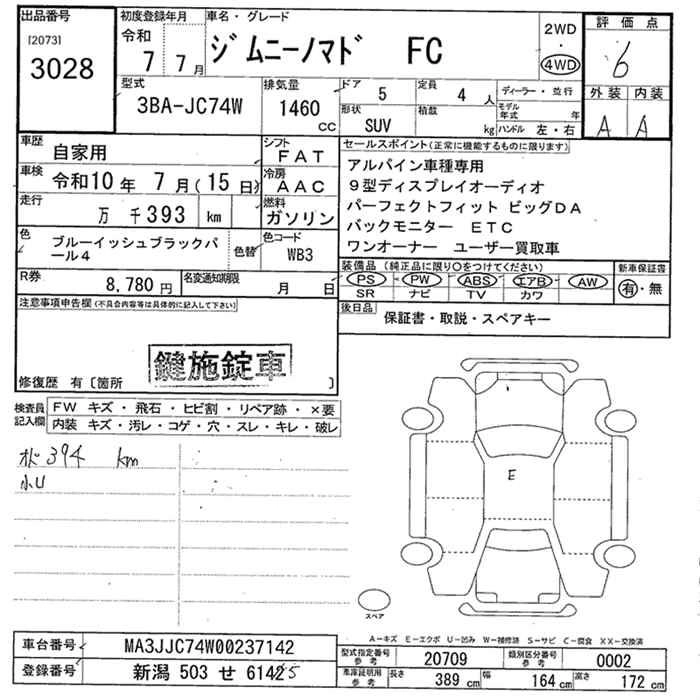 出品番号
[2073]
3028
初度登録年月
令和
7 7月
車名・グレード
ジムニーノマド FC
2WD
・
4WD
評価点
6
外装 内装
A A
型式
3BA-JC74W
排気量
1460
CC
ドア
5
定員
4 人
形状
SUV
積載
kg
ディーラー・並行
モデル年式 年
ハンドル 左・右
車歴
自家用
シフト
FAT
車検
令和10年 7月(15日)
冷房
AAC
走行
万 千393 km
燃料
ガソリン
色
ブルーイッシュブラックパール4
色替
色コード
WB3
R券
8,780円
名変通知期限
月 日
セールスポイント(正常に機能するものに限ります)
アルパイン車種専用
9型ディスプレイオーディオ
パーフェクトフィット ビッグDA
バックモニター ETC
ワンオーナー ユーザー買取車
装備品(純正品に限り○をつけてください)
PS PW ABS エアB AW
SR ナビ TV カワ
新車保証書
有・無
後日品
保証書・取説・スペアキー
注意事項申告欄(不具合内容等は具体的に記入して下さい)
鍵施錠車
修復歴 有〔箇所 〕
検査員記入欄
FW キズ・飛石・ヒビ割・リペア跡・×要
内装 キズ・汚レ・コゲ・穴・スレ・キレ・破レ
394 km
小U
E
スペア
A-キズ E-エクボ U-凹み W-補修跡 S-サビ C-腐食 XX-交換済
車台番号
MA3JJC74W00237142
登録番号
新潟 503 せ 6145
型式指定番号
参考
20709
類別区分番号
参考
0002
車庫証明用
参考
長さ
389 cm
幅
164 cm
高さ
172 cm